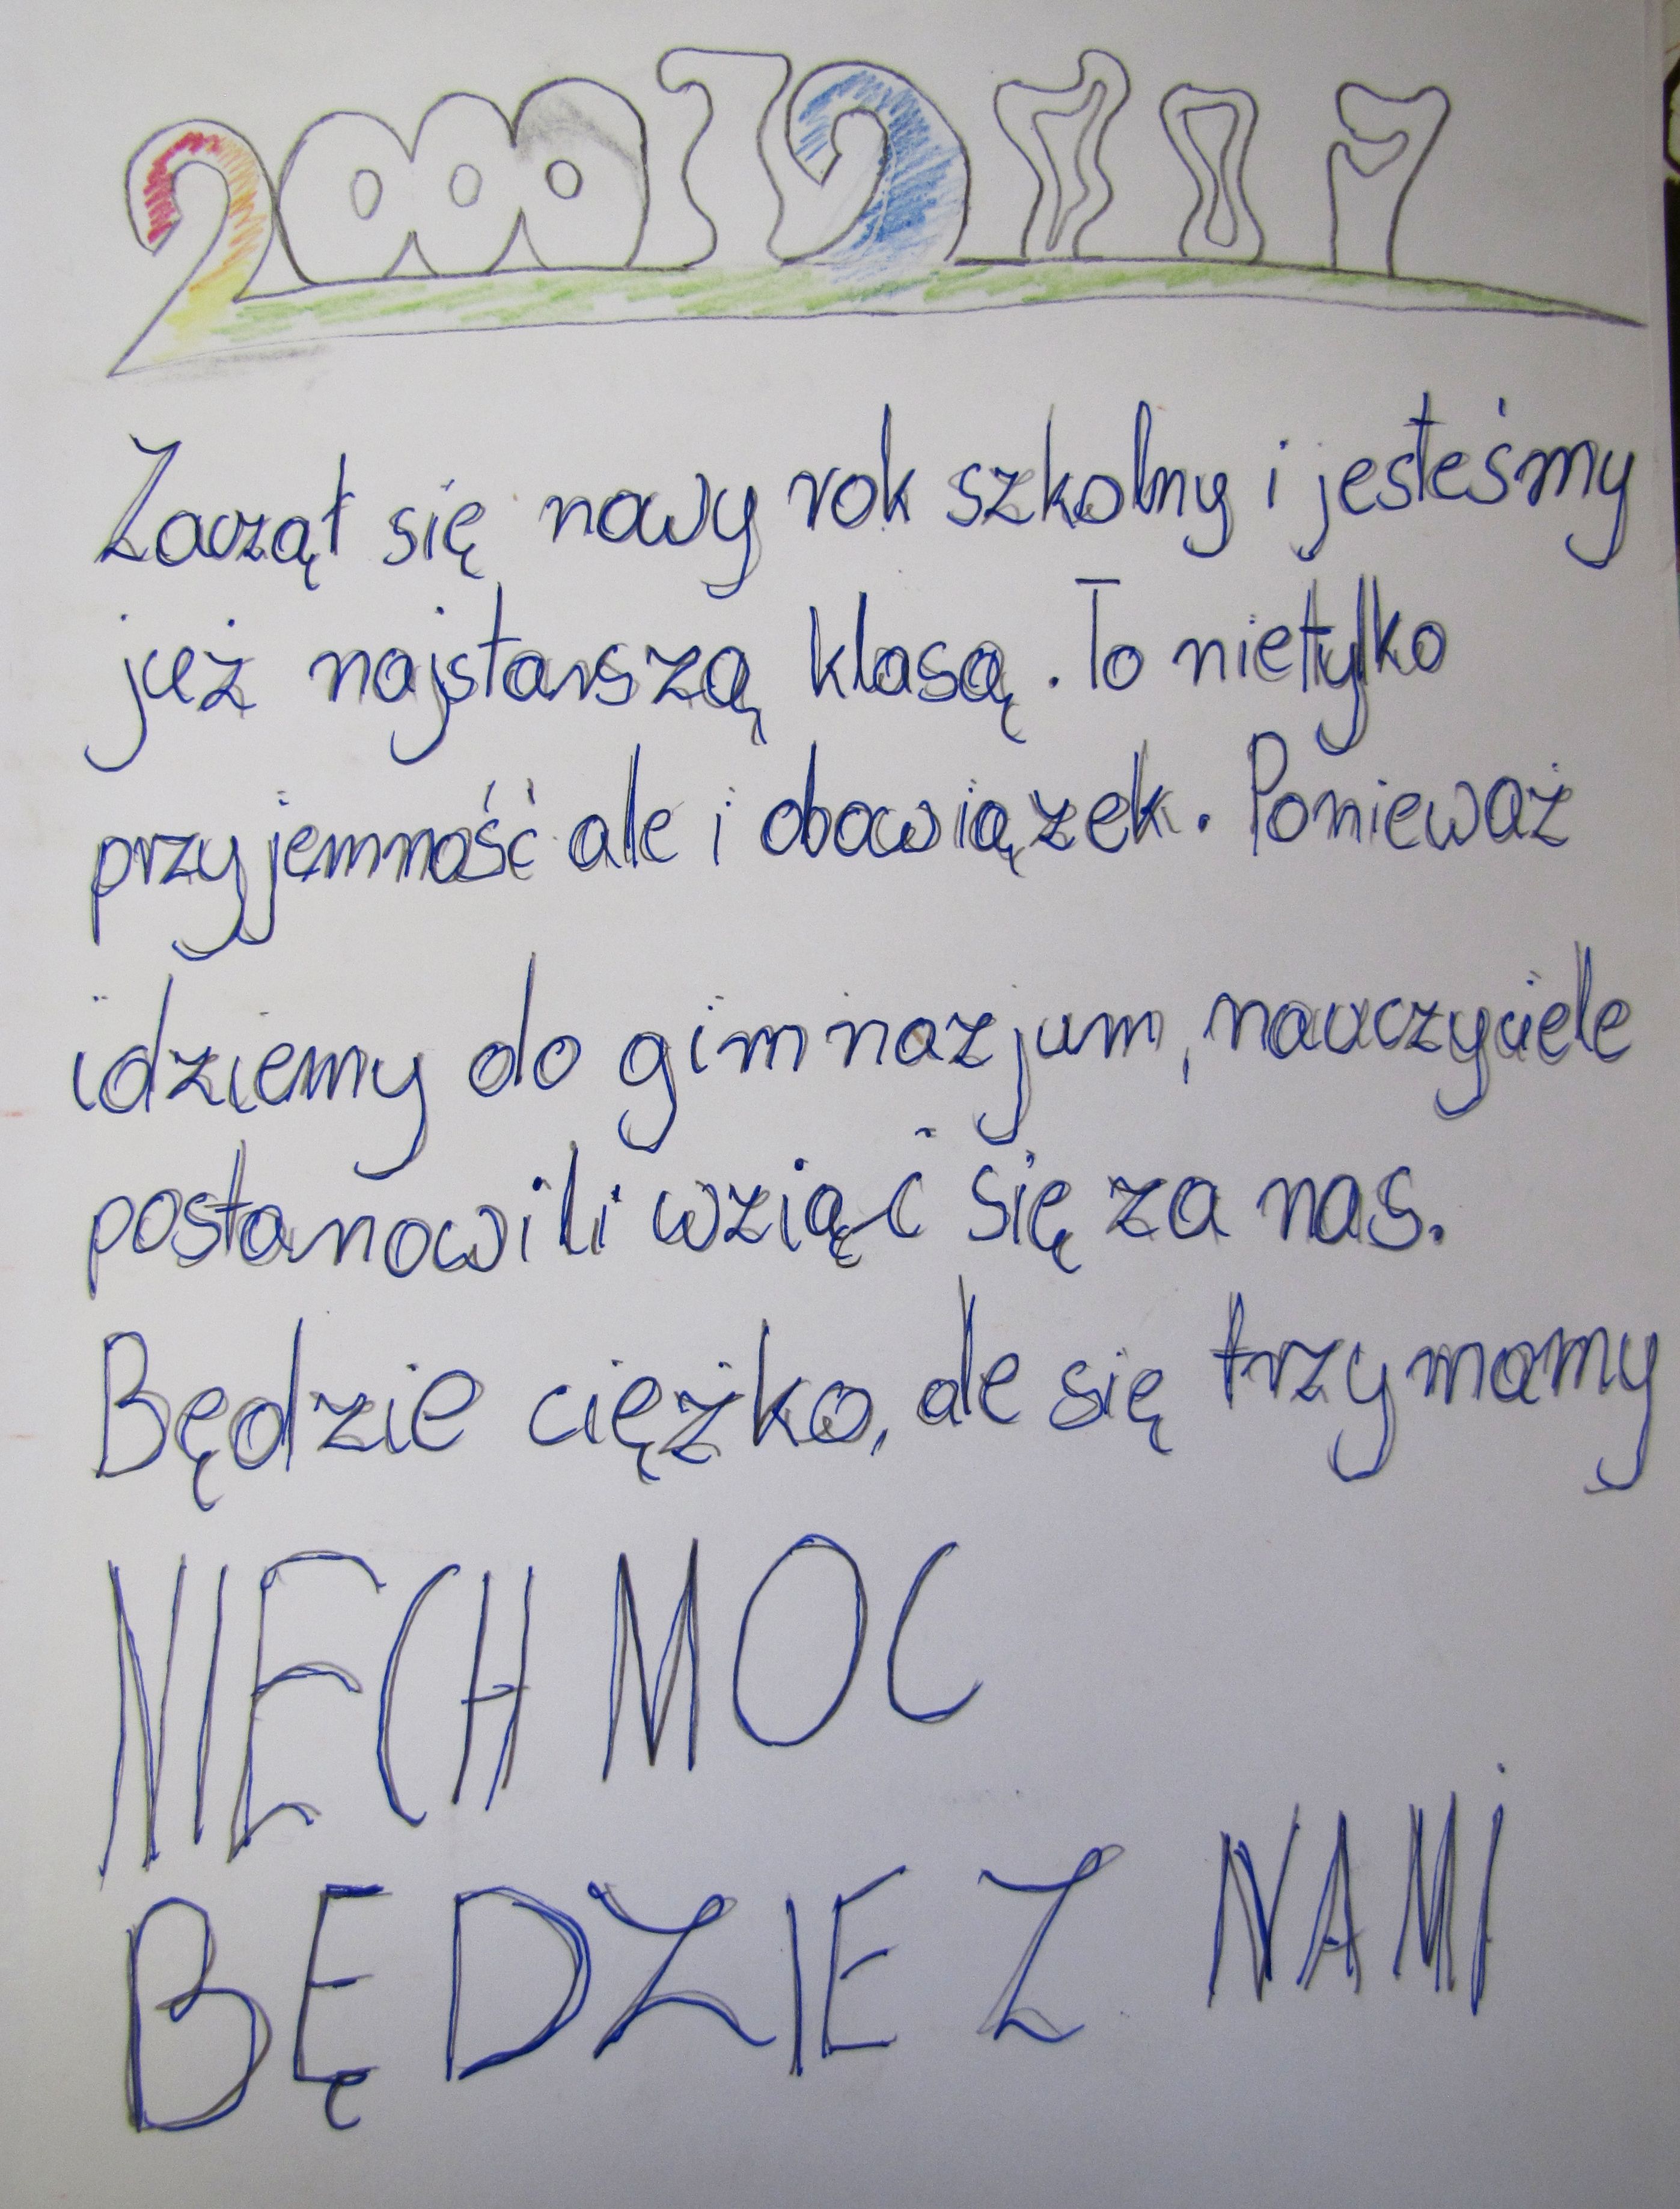 2000
Zaczął się nowy rok szkolny i jesteśmy
już najstarszą klasą. To nietylko
przyjemność ale i obowiązek. Ponieważ
idziemy do gimnazjum, nauczyciele
postanowili wziąć się za nas.
Będzie ciężko, ale się trzymamy
NIECH MOC
BĘDZIE Z NAMi